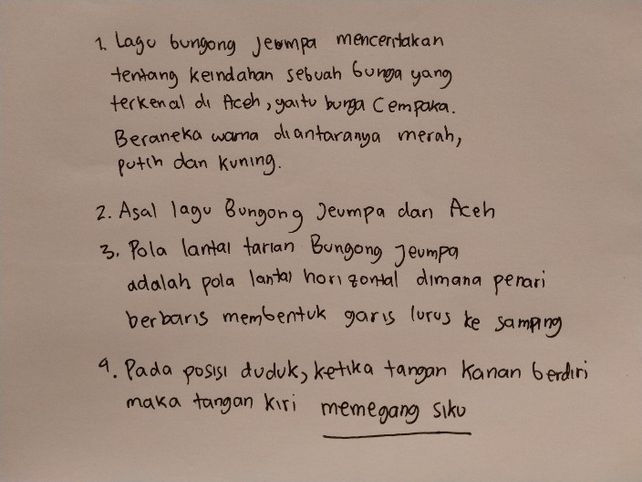 1. Lagu bungong Jeumpa menceritakan
tentang keindahan sebuah bunga yang
terkenal di Aceh, yaitu bunga Cempaka.
Beraneka warna diantaranya merah,
putih dan kuning.
2. Asal lagu Bungong Jeumpa dari Aceh
3. Pola lantai tarian Bungong Jeumpa
adalah pola lantai horizontal dimana penari
berbaris membentuk garis lurus ke samping
4. Pada posisi duduk, ketika tangan kanan berdiri
maka tangan kiri memegang siku